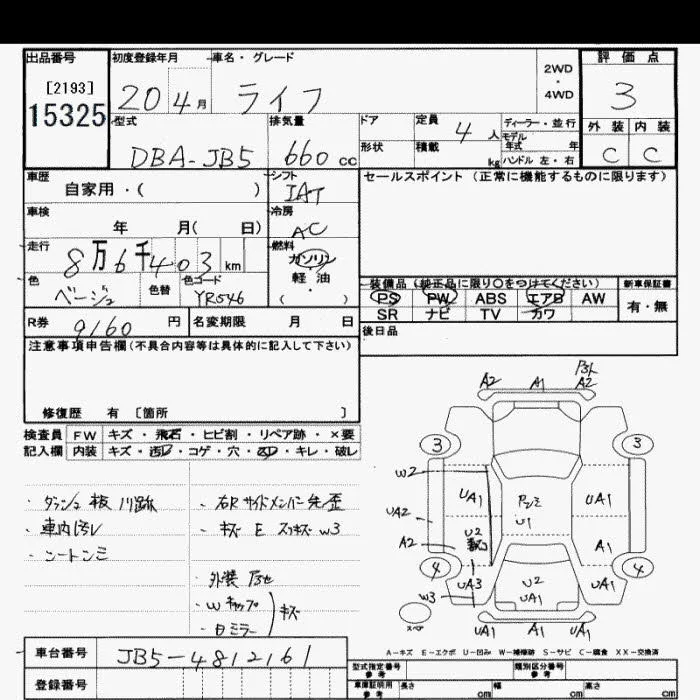 出品番号 初度登録年月 車名・グレード 2WD・4WD 評価点
[2193]
15325
20年4月 ライフ 3
型式 排気量 ドア 定員 ディーラー・並行 外装 内装
DBA-JB5 660cc 形状 積載 4人 kg モデル年式 年 ハンドル 左・右 C C
車歴 シフト セールスポイント(正常に機能するものに限ります)
自家用・( ) IAT
車検 冷房
年 月( 日) AC
走行 燃料
8万6千403km ガソリン
軽油
・
( )
色 色替 色コード
ベージュ YR546
装備品(純正品に限り○をつけてください) 新車保証書
PS PW ABS エアB AW 有・無
SR ナビ TV カワ
R券 9160円 名変期限 月 日 後日品
注意事項申告欄(不具合内容等は具体的に記入して下さい)
修復歴 有 [箇所 ]
検査員 FW キズ・飛石・ヒビ割・リペア跡・×要
記入欄 内装 キズ・汚れ・コゲ・穴・・キレ・破レ
・車内汚レ
・シートシミ
・右Rサイドメンバー先歪
・キズ E スリキズ W3
・外装
・Wキャップ
・ミラー キズ
A2 A1 A2
3 3
W2
UA1 UA1
UA2 U1
A2 U2 A1
4 4
UA3 U2 UA1
W3 UA1
スペア UA1 A1 UA1
A-キズ E-エクボ U-凹み W-補修跡 S-サビ C-腐食 XX-交換済
車台番号 JB5-4812161
登録番号
型式指定番号 参考 類別区分番号 参考
車庫証明用 参考 長さ cm 幅 cm 高さ cm